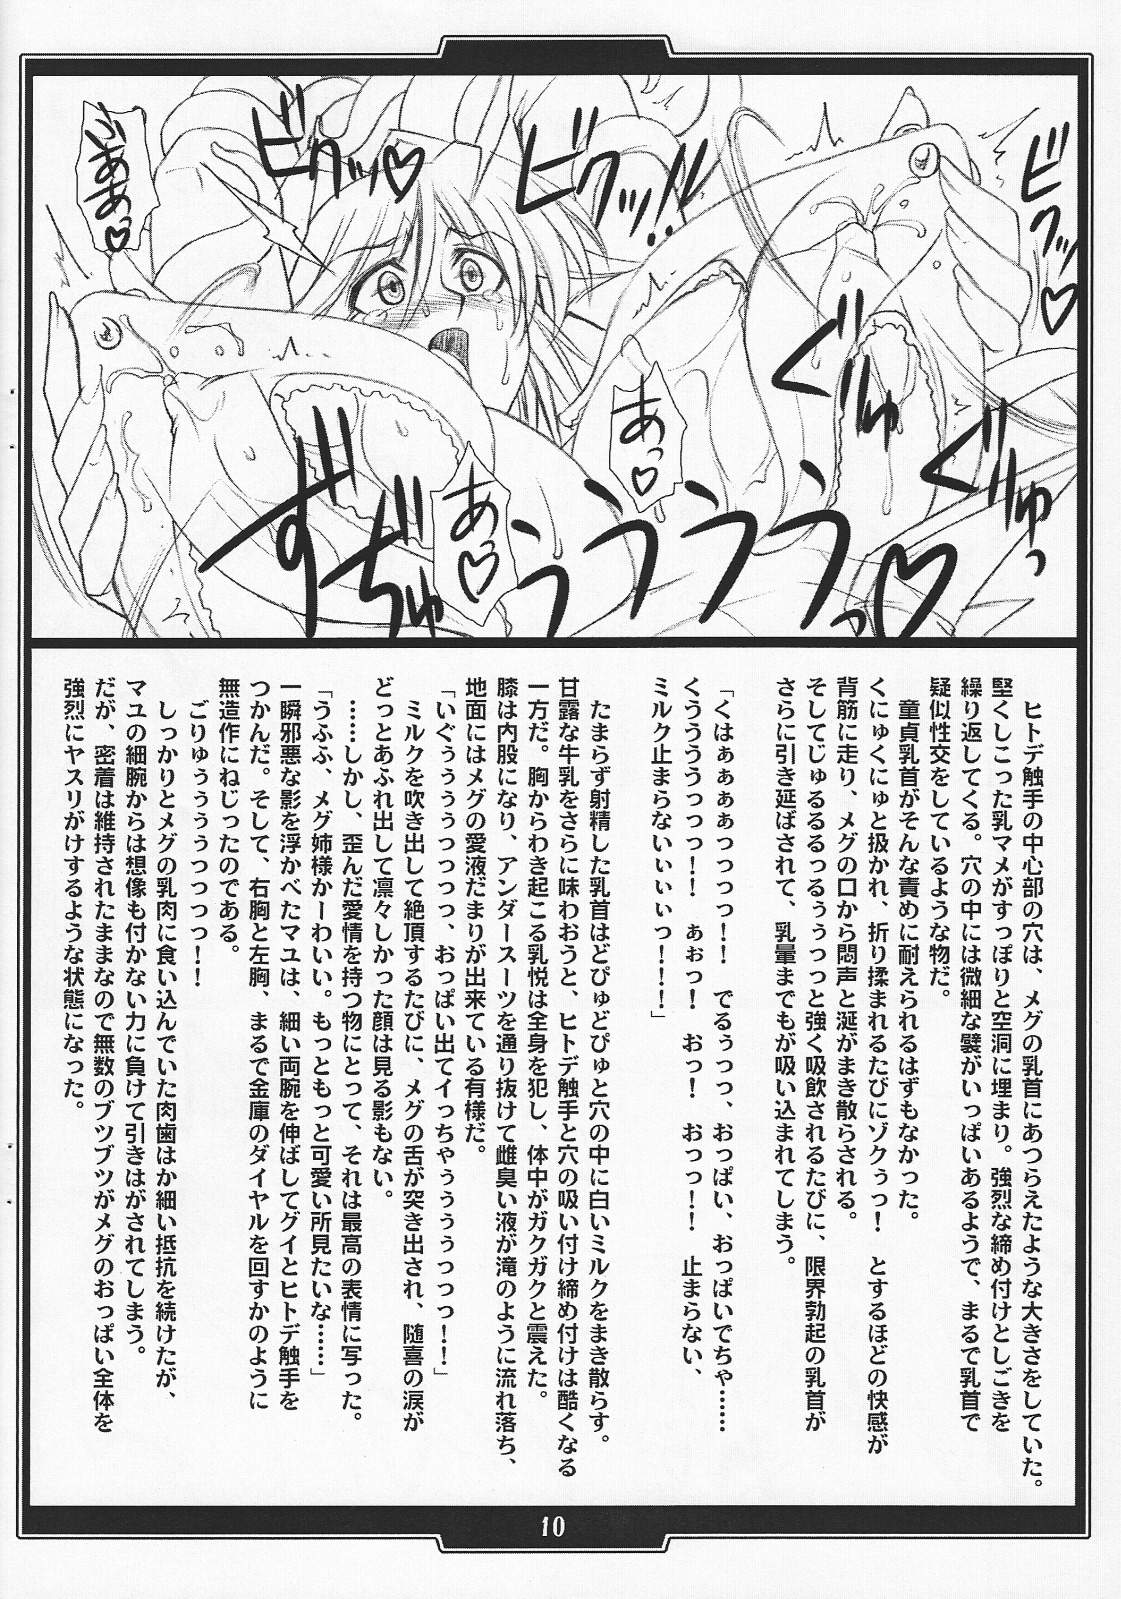 ビクッ
ビクッ♡
ビクッ!!
ごああっ♡
ぐぢゅ
ぐぢゅっ
あっ♡
あっ♡
ずぢゅううううううっ♡
ヒトデ触手の中心部の穴は、メグの乳首にあつらえたような大きさをしていた。
堅くしこった乳マメがすっぽりと空洞に埋まり。強烈な締め付けとしごきを
繰り返してくる。穴の中には微細な襞がいっぱいあるようで、まるで乳首で
疑似性交をしているような物だ。
童貞乳首がそんな責めに耐えられるはずもなかった。
くにゅくにゅと扱かれ、折り揉まれるたびにゾクぅっ!　とするほどの快感が
背筋に走り、メグの口から悶声と涎がまき散らされる。
そしてじゅるるるっるぅぅっっと強く吸飲されるたびに、限界勃起の乳首が
さらに引き延ばされて、乳暈までもが吸い込まれてしまう。
「くはぁぁぁぁっっっっ!!　でるぅっっ、おっぱい、おっぱいでちゃ……
くうううううっっっ!!　ぉおっ!　おっ!　おっっ!!　止まらない、
ミルク止まらないぃぃぃぃっ!!!!」
たまらず射精した乳首はどぴゅどぴゅと穴の中に白いミルクをまき散らす。
甘露な牛乳をさらに味わおうと、ヒトデ触手と穴の吸い付け締め付けは酷くなる
一方だ。胸からわき起こる乳悦は全身を犯し、体中がガクガクと震えた。
膝は内股になり、アンダースーツを通り抜けて雌臭い液が滝のように流れ落ち、
地面にはメグの愛液だまりが出来ている有様だ。
「いぐぅぅぅぅぅっっっっ、おっぱい出てイっちゃぅぅぅぅっっっ!!」
ミルクを吹き出して絶頂するたびに、メグの舌が突き出され、随喜の涙が
どっとあふれ出して凛々しかった顔は見る影もない。
……しかし、歪んだ愛情を持つ物にとって、それは最高の表情に写った。
「うふふ、メグ姉様かーわいい。もっともっと可愛い所見たいな……」
一瞬邪悪な影を浮かべたマユは、細い両腕を伸ばしてグイとヒトデ触手を
つかんだ。そして、右胸と左胸、まるで金庫のダイヤルを回すかのように
無造作にねじったのである。
ごりゅぅぅぅぅっっっっ!!
しっかりとメグの乳肉に食い込んでいた肉歯はか細い抵抗を続けたが、
マユの細腕からは想像も付かない力に負けて引きはがされてしまう。
だが、密着は維持されたままなので無数のブツブツがメグのおっぱい全体を
強烈にヤスリがけするような状態になった。
10